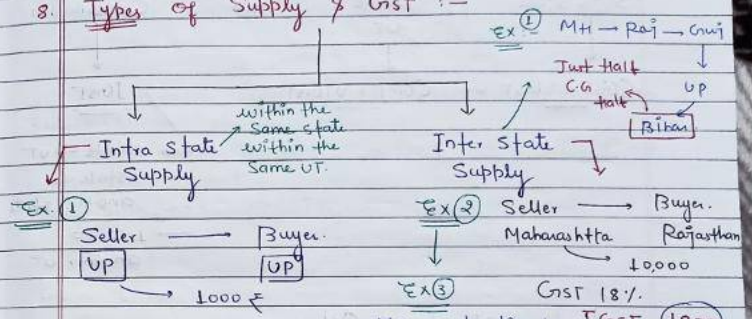 8. Types of Supply & GST :-
Ex ① MH → Raj → Guj
UP
Bihar
Just Half
C.G
Half
Intra State
Supply
within the
Same state
within the
Same UT.
Inter State
Supply
Ex. ①
Seller → Buyer.
UP UP
1000 ₹
Ex ② Seller → Buyer.
Maharashtta Rajasthan
10,000
Ex ③ GST 18%.
IGST